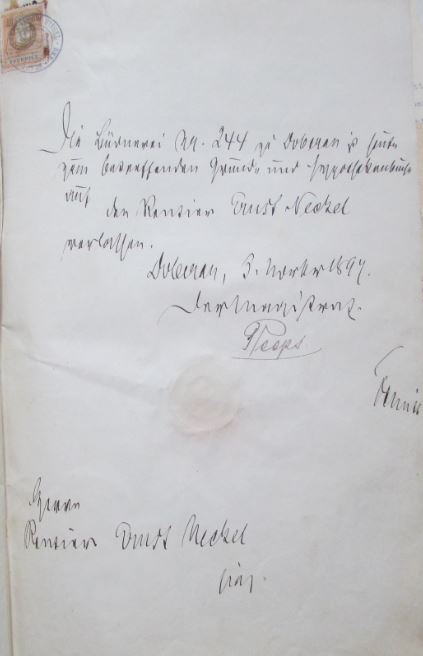 Die Büdnerei Nr. 244 zu Doberan ist heute
zum betreffenden Grund- und Hypothekenbuche
auf den Rentier Ernst Neckel
verlassen.
Doberan, 3. Novbr 1897.
Der Magistrat.
Herrn
Rentier Ernst Neckel
hier.